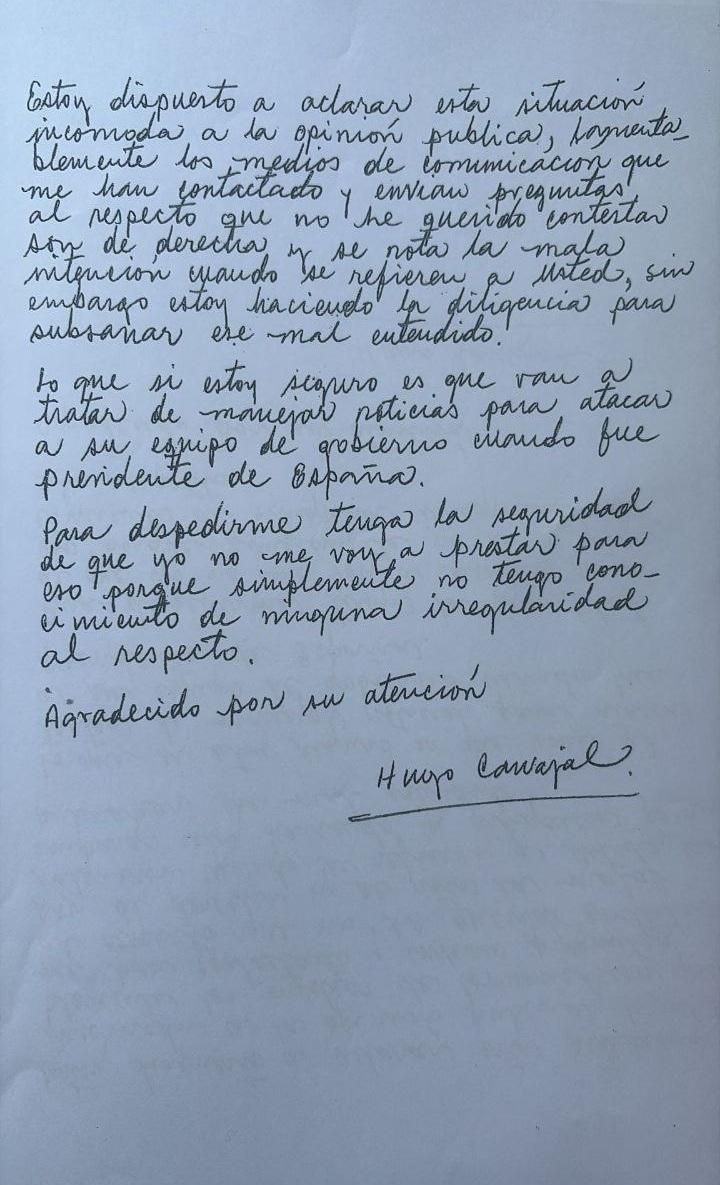 Estoy dispuesto a aclarar esta situación
incomoda a la opinión publica, lamenta_
blemente los medios de comunicacion que
me han contactado y envian preguntas
al respecto que no he querido contestar
son de derecha y se nota la mala
intención cuando se refieren a Usted, sin
embargo estoy haciendo la diligencia para
subsanar ese mal entendido.
Lo que si estoy seguro es que van a
tratar de manejar noticias para atacar
a su equipo de gobierno cuando fue
presidente de España.
Para despedirme tenga la seguridad
de que yo no me voy a prestar para
eso porque simplemente no tengo cono_
cimiento de ninguna irregularidad
al respecto.
Agradecido por su atención
Hugo Carvajal.